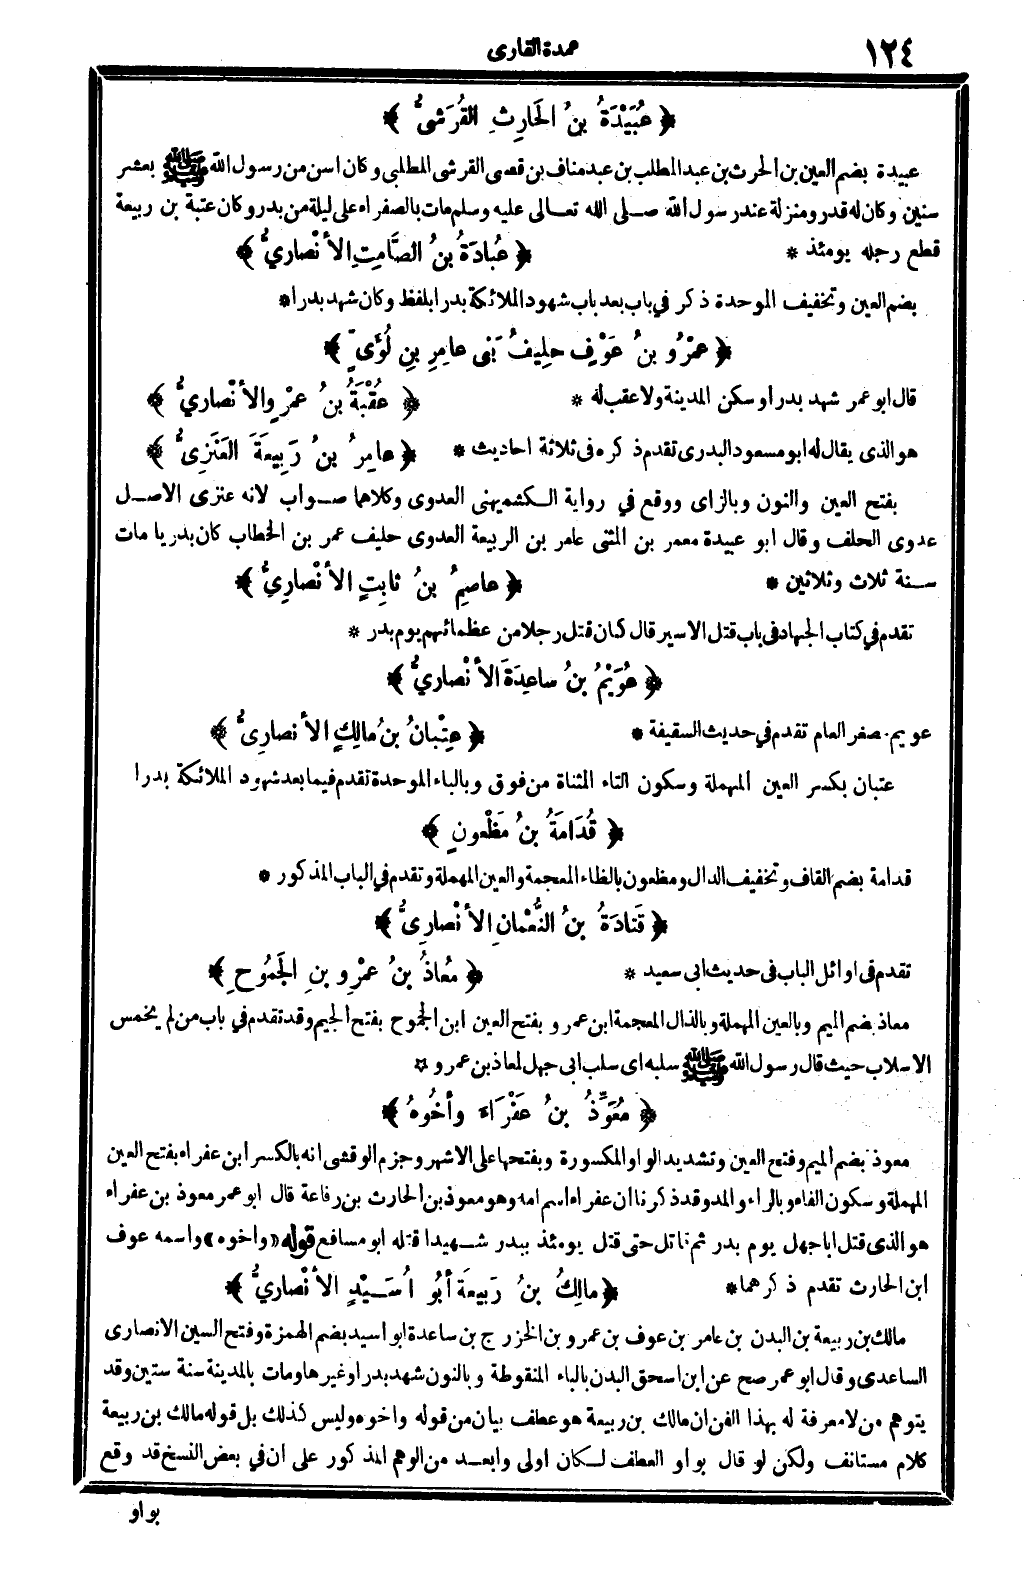 ١٢٤
عمدة القارى
﴿ عُبَيْدَةُ بنُ الحَارِثِ القُرَشِىُّ ﴾
عبيدة بضم العين بن الحرث بن عبد المطلب بن عبد مناف بن قصى القرشى المطلبى وكان اسن من رسول الله ﷺ بعشر
سنين وكان له قدر ومنزلة عند رسول الله صلى الله تعالى عليه وسلم مات بالصفراء على ليلة من بدر وكان عتبة بن ربيعة
قطع رجله يومئذ * ﴿ عُبادَةُ بنُ الصَّامِتِ الأنْصارِيُّ ﴾
بضم العين وتخفيف الموحدة ذكر في باب بعد باب شهود الملائكة بدرا بلفظ وكان شهد بدرا *
﴿ عَمْرُو بنُ عَوْفٍ حلِيفُ بَنى عامِرِ بنِ لُؤَىٍّ ﴾
قال ابو عمر شهد بدرا وسكن المدينة ولا عقب له * ﴿ عُقْبَةُ بنُ عمْرٍو الأنْصارِيُّ ﴾
هو الذى يقال له ابو مسعود البدرى تقدم ذكره فى ثلاثة احاديث * ﴿ عامِرُ بنُ رَبِيعَةَ العَنَزِىُّ ﴾
بفتح العين والنون وبالزاى ووقع في رواية الكشميهنى العدوى وكلاهما صواب لانه عنزى الاصل
عدوى الحلف وقال ابو عبيدة معمر بن المثنى عامر بن الربيعة العدوى حليف عمر بن الخطاب كان بدريا مات
سنة ثلاث وثلاثين * ﴿ عاصِمُ بنُ ثابِتٍ الأنْصارِيُّ ﴾
تقدم في كتاب الجهاد فى باب قتل الاسير قال كان قتل رجلا من عظمائهم يوم بدر *
﴿ عُوَيْمُ بنُ ساعِدَةَ الأنْصارِيُّ ﴾
عويم مصغر العام تقدم في حديث السقيفة * ﴿ عِتْبانُ بنُ مالِكٍ الأنصارِىُّ ﴾
عتبان بكسر العين المهملة وسكون التاء المثناة من فوق وبالباء الموحدة تقدم فيما بعد شهود الملائكة بدرا
﴿ قُدَامَةُ بنُ مَظْعونٍ ﴾
قدامة بضم القاف وتخفيف الدال ومظعون بالظاء المعجمة والعين المهملة وتقدم في الباب المذكور *
﴿ قَتادَةُ بنُ النُّعْمانِ الأنْصارِىُّ ﴾
تقدم فى اوائل الباب فى حديث ابى سعيد * ﴿ مُعاذُ بنُ عمْرِو بنِ الجَمُوحِ ﴾
معاذ بضم الميم وبالعين المهملة وبالذال المعجمة ابن عمرو بفتح العين ابن الجموح بفتح الجيم وقد تقدم في باب من لم يخمس
الاسلاب حيث قال رسول الله ﷺ سلبه اى سلب ابى جهل لمعاذ بن عمرو *
﴿ مُعَوِّذُ بنُ عَفْرَاءَ وأخُوهُ ﴾
معوذ بضم الميم وفتح العين وتشديد الواو المكسورة وبفتحها على الاشهر وجزم الوقشى انه بالكسر ابن عفراء بفتح العين
المهملة وسكون الفاء وبالراء والمد وقد ذكرنا ان عفراء اسم امه وهو معوذ بن الحارث بن رفاعة قال ابو عمر معوذ بن عفراء
هو الذى قتل ابا جهل يوم بدر ثم قاتل حتى قتل يومئذ ببدر شهيدا قتله ابو مسافع قوله «واخوه» واسمه عوف
ابن الحارث تقدم ذكرهما * ﴿ مالِكُ بنُ رَبِيعَةَ أبُو اُسَيْدٍ الأنْصارِيُّ ﴾
مالك بن ربيعة بن البدن بن عامر بن عوف بن عمرو بن الخزرج بن ساعدة ابو اسيد بضم الهمزة وفتح السين الانصارى
الساعدى وقال ابو عمر صح عن ابن اسحق البدن بالباء المنقوطة وبالنون شهد بدرا وغيرها ومات بالمدينة سنة ستين وقد
يتوهم من لا معرفة له بهذا الفن ان مالك بن ربيعة هو عطف بيان من قوله واخوه وليس كذلك بل قوله مالك بن ربيعة
كلام مستانف ولكن لو قال بواو العطف لكان اولى وابعد من الوهم المذكور على ان في بعض النسخ قد وقع
بواو